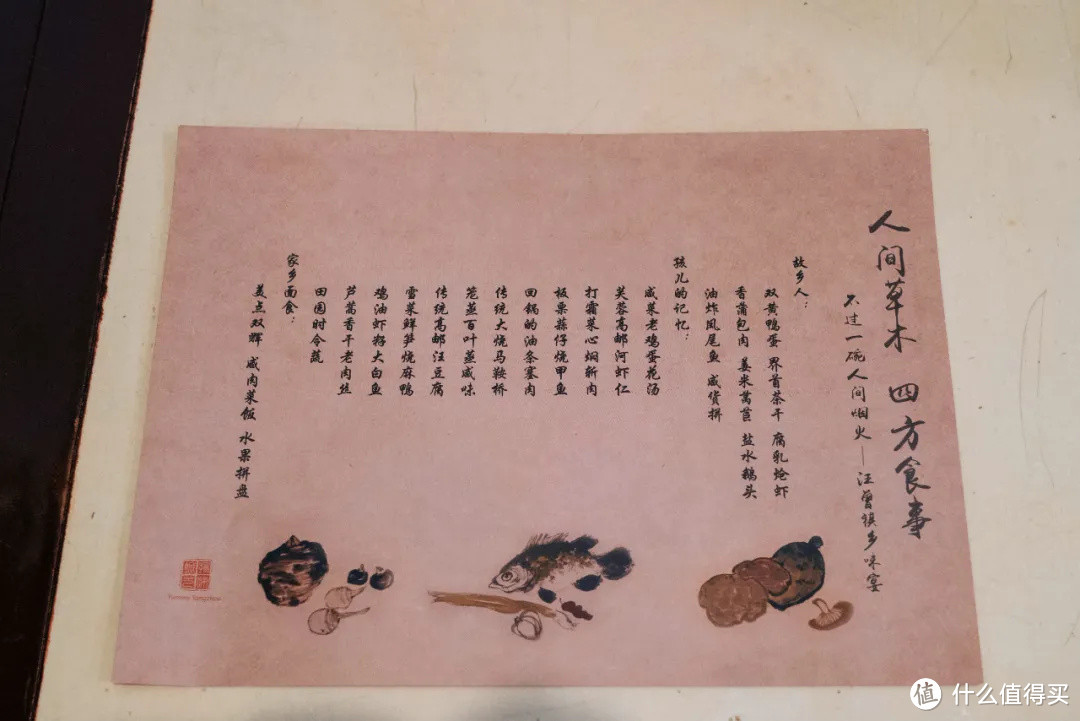 人间草木 四方食事
不过一碗人间烟火——汪曾祺乡味宴
故乡人：
双黄鸭蛋 界首茶干 腐乳炝虾
香蒲包肉 姜米莴苣 盐水鹅头
油炸凤尾鱼 咸货拼
孩儿的记忆：
咸菜老鸡蛋花汤
芙蓉高邮河虾仁
打霜菜心焖斩肉
板栗蒜仔烧甲鱼
回锅的油条塞肉
传统大烧马鞍桥
笼蒸百叶蒸咸味
传统高邮汪豆腐
雪菜鲜笋烧麻鸭
鸡油虾籽大白鱼
芦蒿香干老肉丝
田园时令蔬
家乡面食：
美点双辉 咸肉菜饭 水果拼盘
值 什么值得买